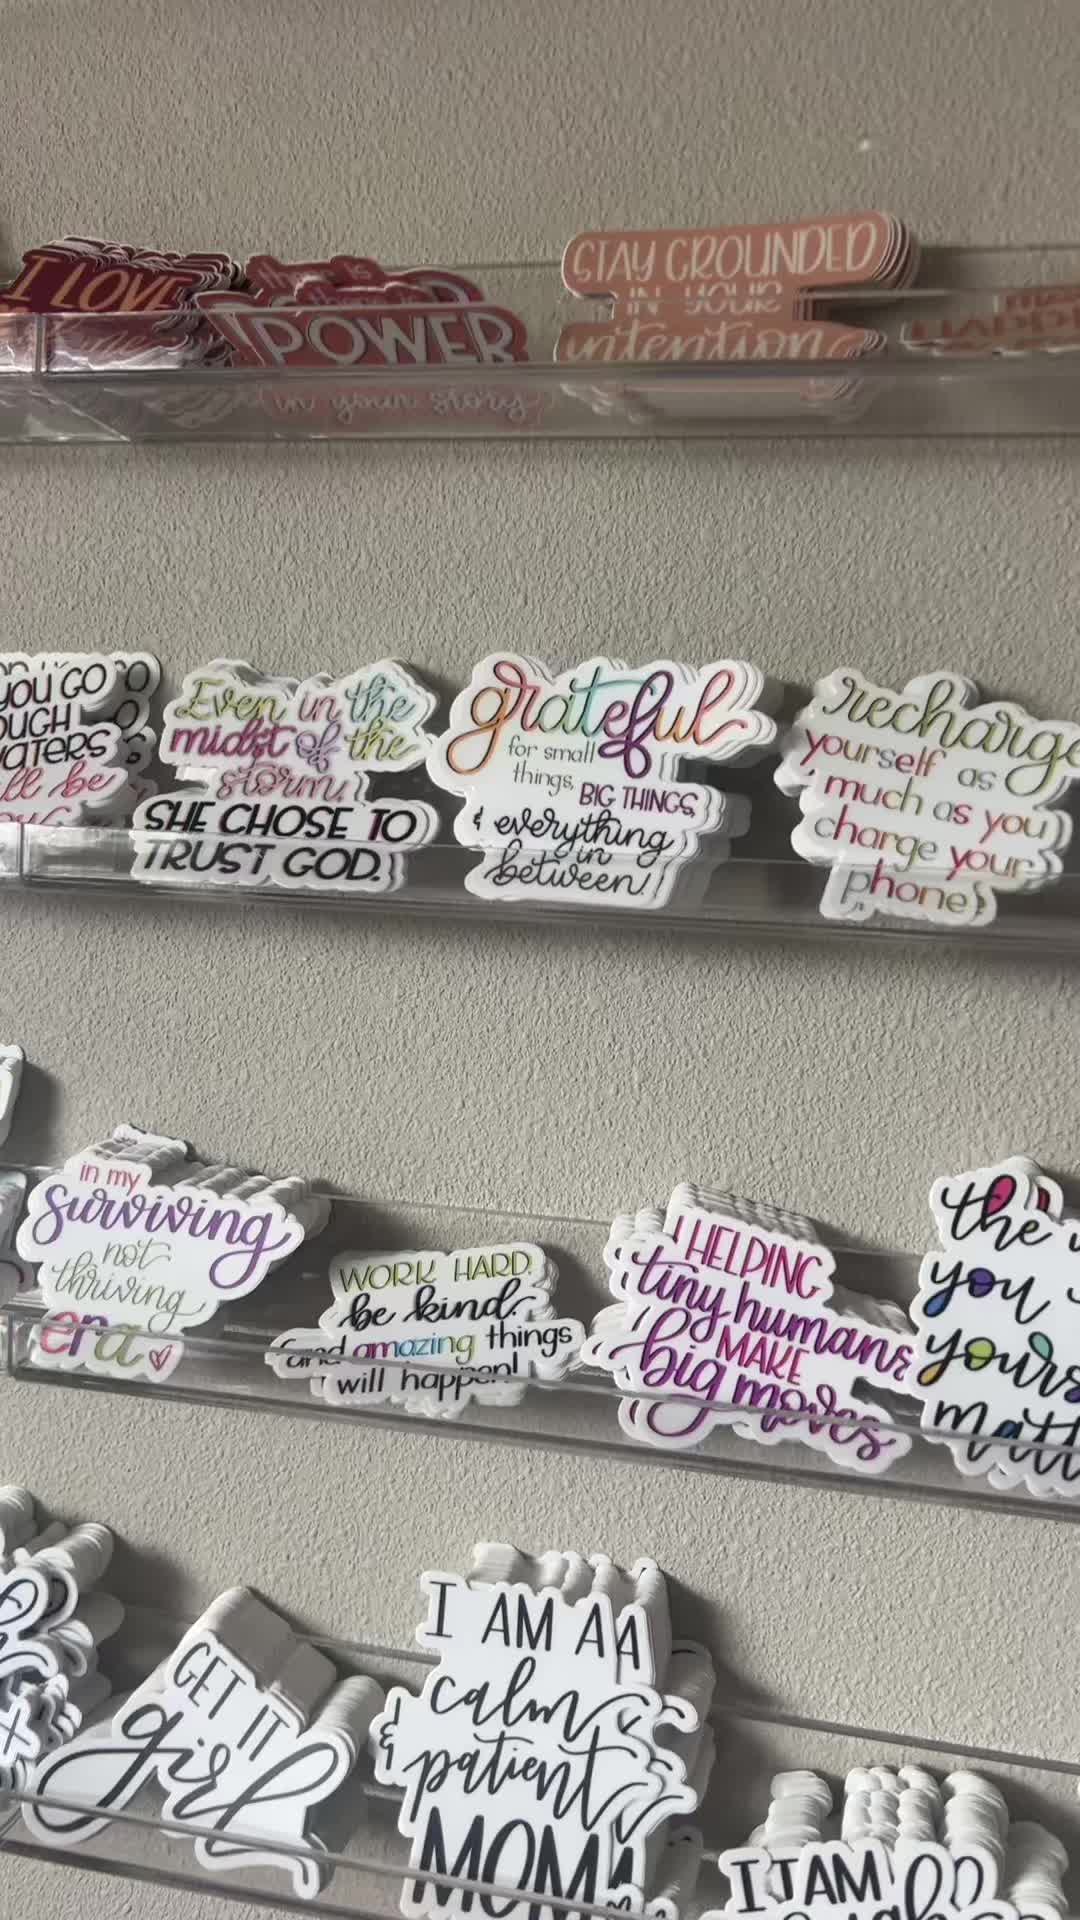 I LOVE
there is
POWER
in your story
STAY GROUNDED
IN YOUR
intention
YOU GO
WATERS
be
Even in the
midst of the
storm,
SHE CHOSE TO
TRUST GOD.
grateful
for small
things, BIG THINGS,
& everything
in
between!
recharge
yourself as
much as you
charge your
phone!
in my
surviving
not
thriving
era
WORK HARD.
be kind.
and amazing things
will happen!
HELPING
tiny humans
MAKE
big moves
the
you
GET IT
girl
I AM A
calm
& patient
MOM
I AM